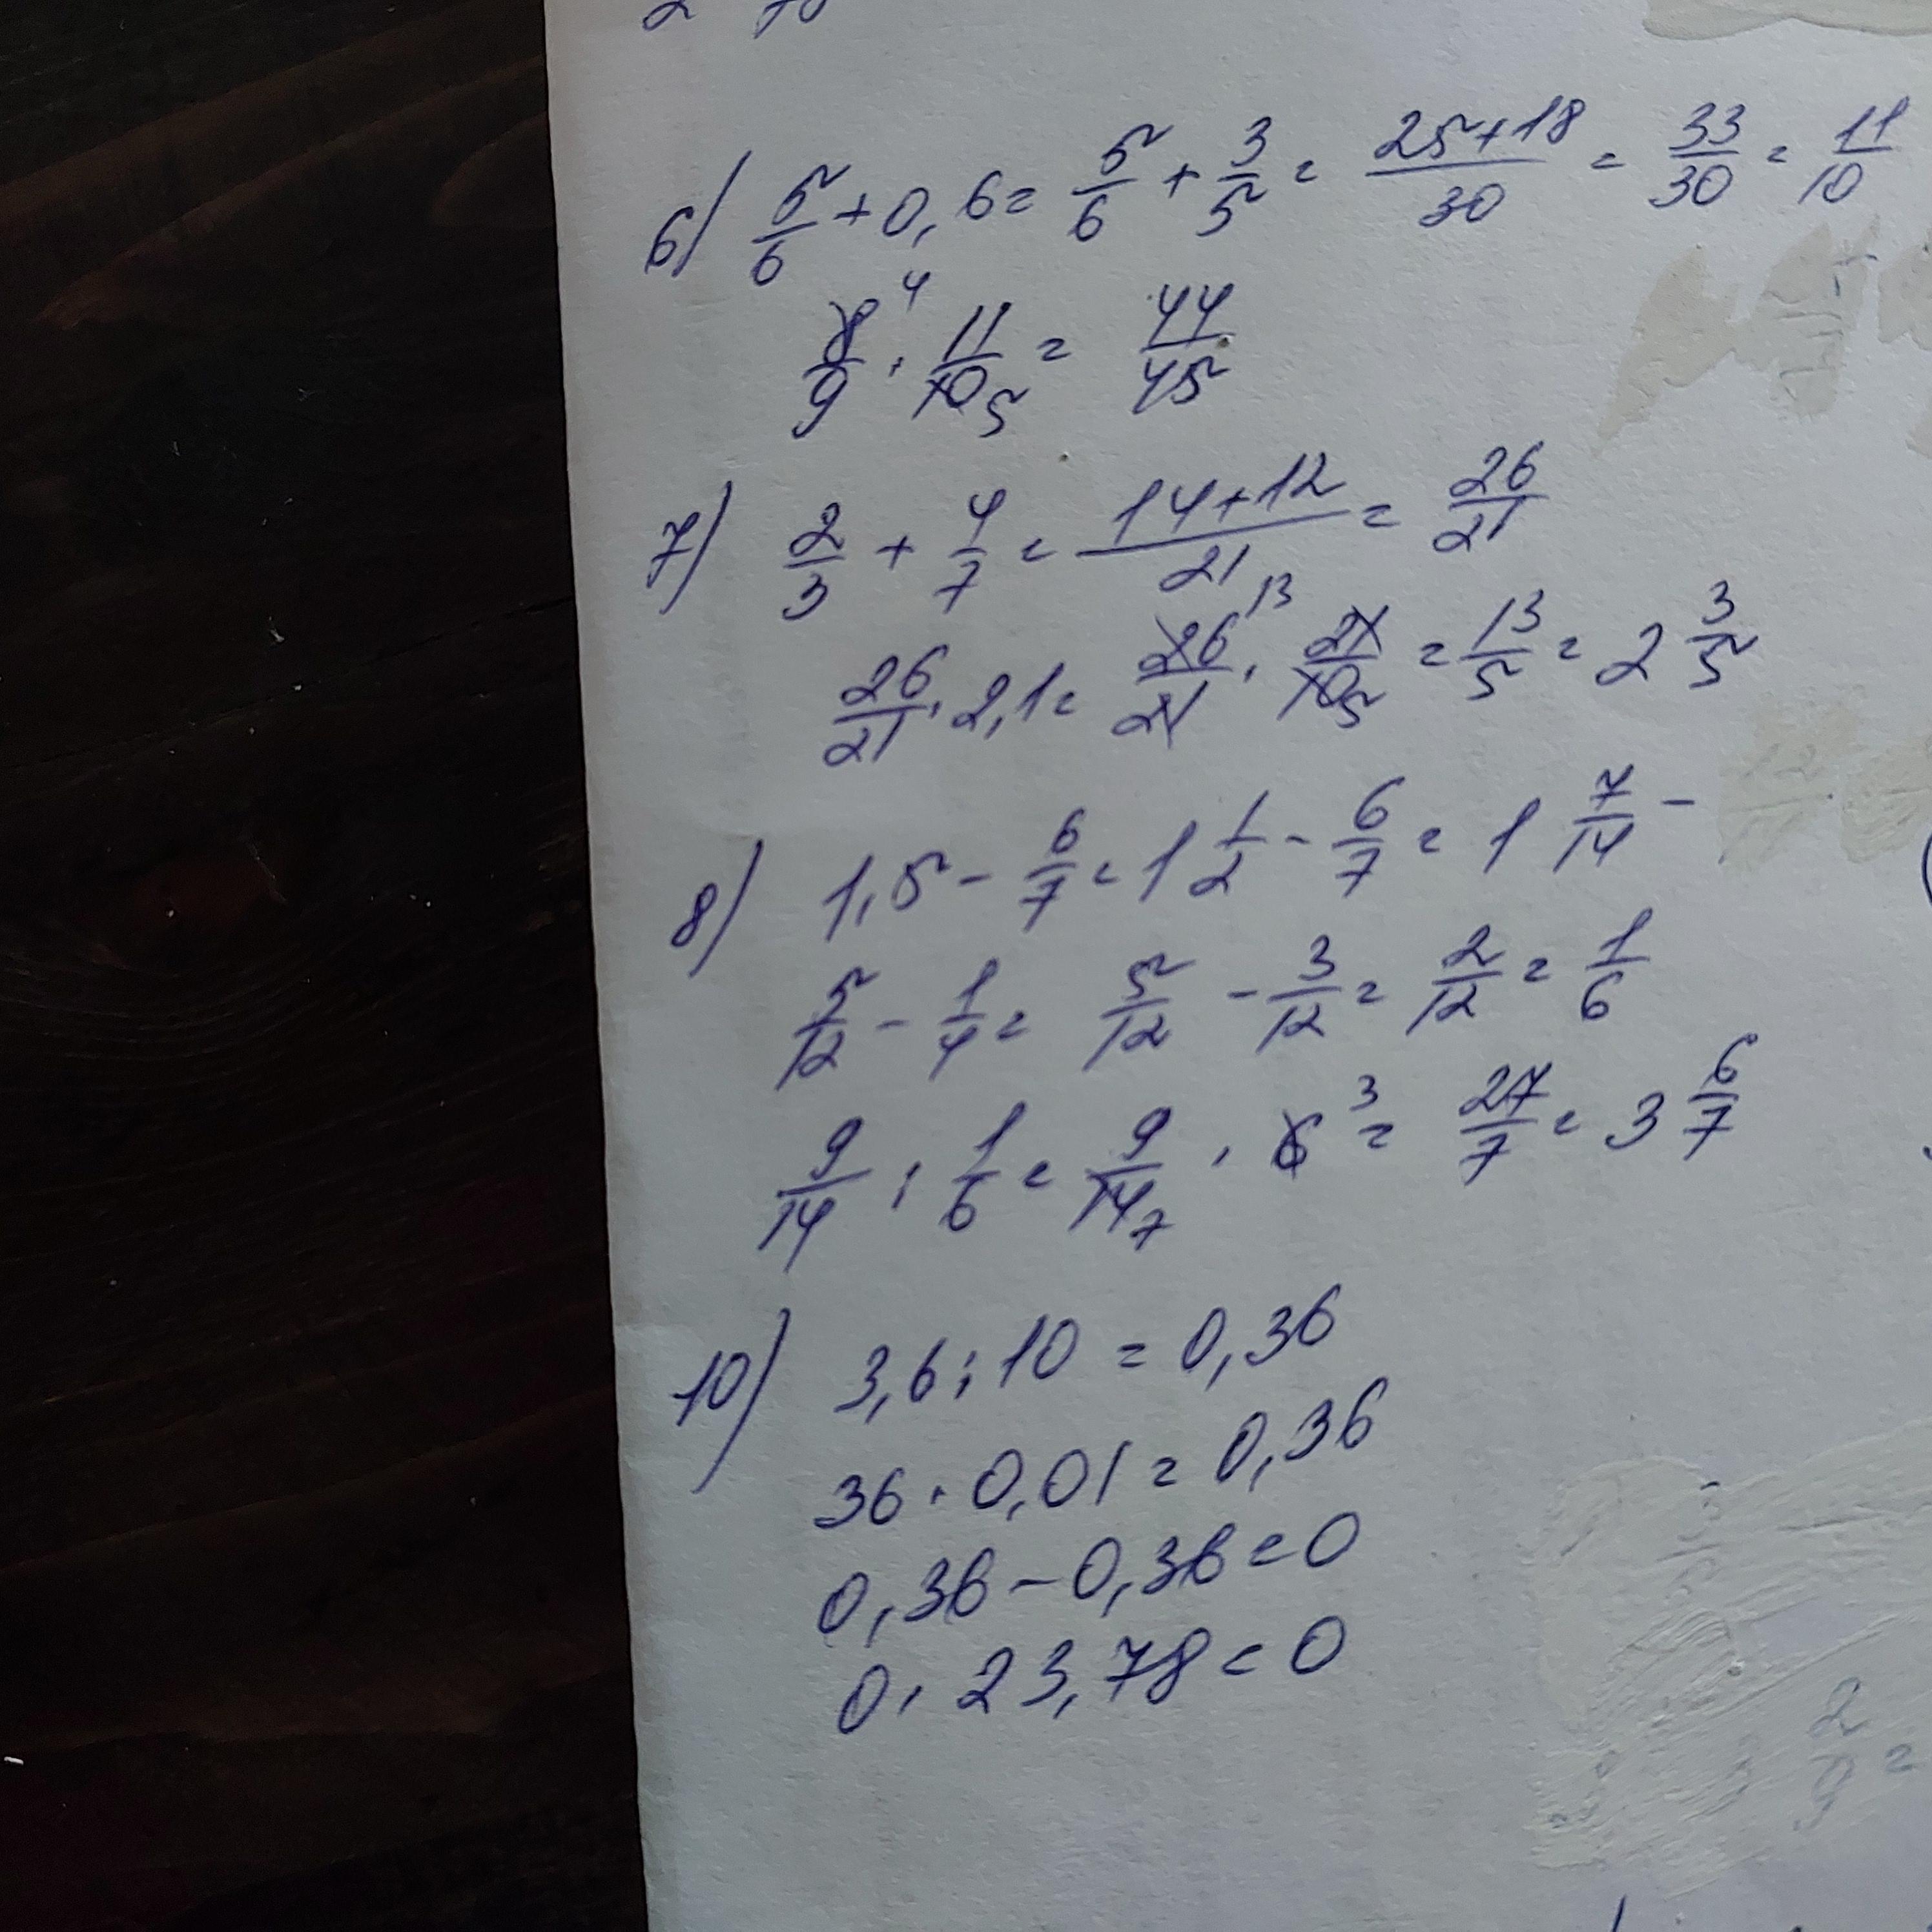 6) 5/6 + 0,6 = 5/6 + 3/5 = (25+18)/30 = 33/30 = 11/10
8/9 4 · 11/10 5 = 44/45
7) 2/3 + 4/7 = (14+12)/21 = 26/21
26/21 · 2,1 = 26/21 13 · 21/10 5 = 13/5 = 2 3/5
8) 1,5 - 6/7 = 1 1/2 - 6/7 = 1 7/14 -
5/12 - 1/4 = 5/12 - 3/12 = 2/12 = 1/6
9/14 : 1/6 = 9/14 7 · 6 3 = 27/7 = 3 6/7
10) 3,6 : 10 = 0,36
36 · 0,01 = 0,36
0,36 - 0,36 = 0
0 · 23,78 = 0
2/9 =